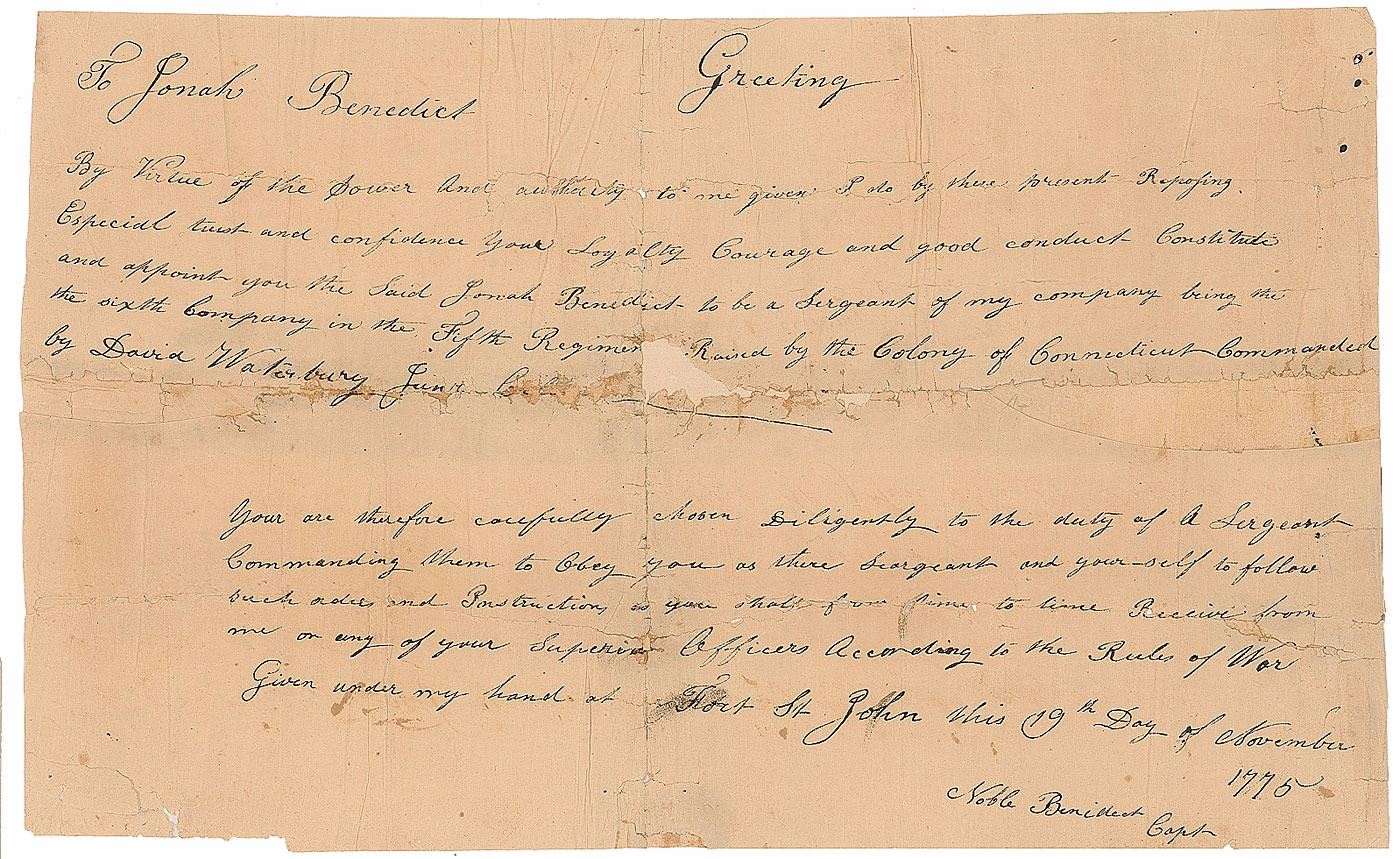 To Jonah Benedict Greeting
By Virtue of the Power And authority to me given I do by these presents Reposing
Especial trust and confidence Your Loyalty Courage and good conduct Constitute
and appoint you the Said Jonah Benedict to be a Sergeant of my company being the
the sixth Company in the Fifth Regimen Raised by the Colony of Connecticut Commanded
by David Waterbury Junr
Your are therefore carefully chosen Diligently to the duty of A Sergeant
Commanding them to Obey you as there Seargeant and your-self to follow
such and Instructions as you shall from time to time Receive from
me or any of your Superior Officers According to the Rules of War
Given under my hand at Fort St John this 19th Day of November
1775
Noble Benidect
Capt